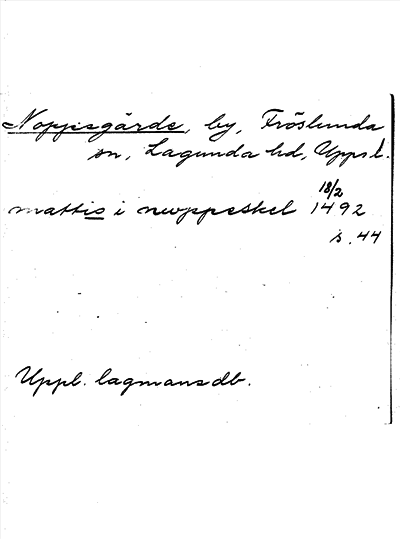 Noppisgärde, by, Fröslunda
sn, Lagunda hd, Uppsl.
18/2
mattis i nwppeskel 1492
s. 44
Uppl. lagmansdb.